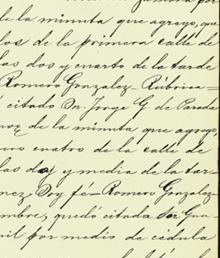 de la minuta que agrego, que
los de la primera calle de
las dos y cuarto de la tarde
Romero Gonzalez - Rúbrica =
citado Dn. Jorge G de Parada
noz de la minuta que agrego
ero cuatro de la calle de
las dos y media de la tar-
nez Doy fé = Romero Gonzalez
mbre, quedó citada
vil por medio de cédula